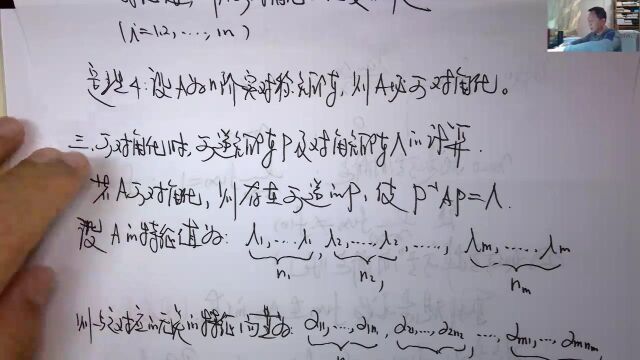 (i=1,2,...,m)
定理4:设A为n阶实对称矩阵,则A必可对角化。
三.可对角化时,可逆矩阵P及对角矩阵Λ的计算.
若A可对角化,则存在可逆的P,使P⁻¹AP=Λ.
设A的特征值为: λ₁,...λ₁, λ₂,...,λ₂, ...., λm,...,λm
n₁ n₂, nm
则与之对应的无关的特征向量为: α₁₁,...,α₁n₁ α₂₁,...,α₂n₂ ... αm₁,...,αmnm